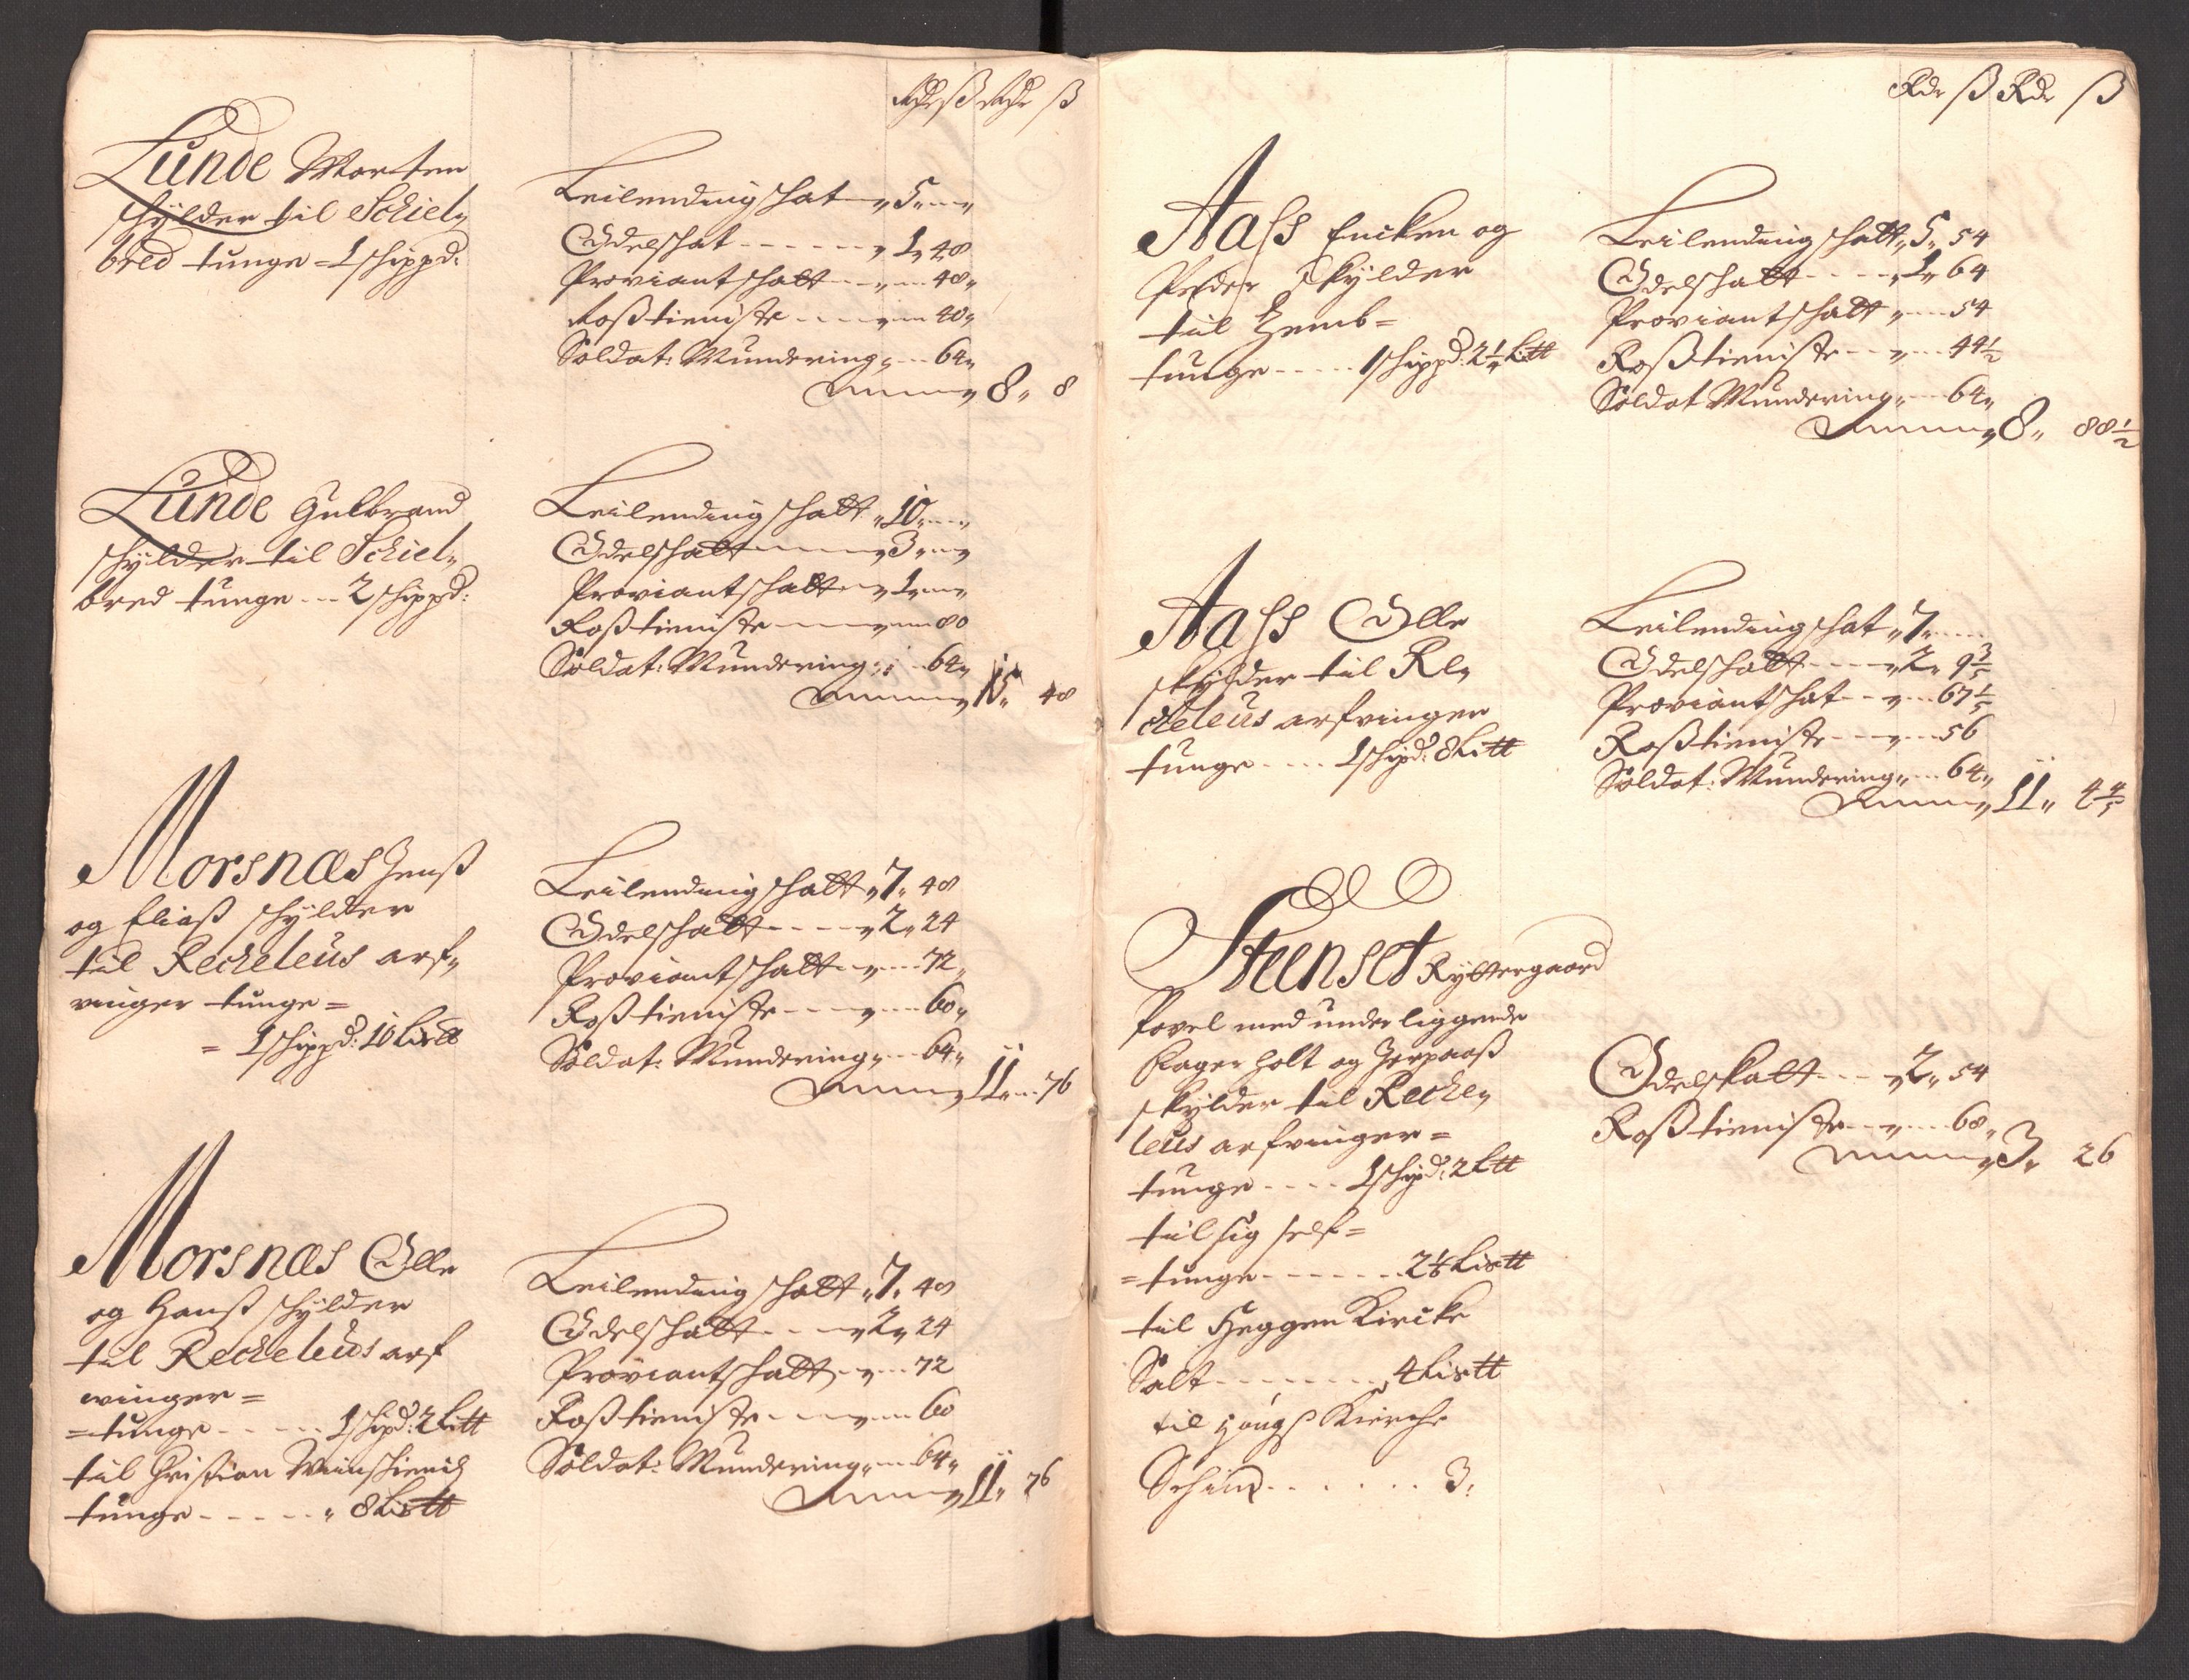 Rdr ß Rdr ß
Lunde Morten
schylder til Schiel„
bred tunge = 1 schippd:
Leilending shat „ 5 „ „
Odelshat - - - - „ 1 „ 48
Proviantschatt - - „ - 48 „
Roßtieniste - - - „ - 40 „
Soldat: Mundering „ - - 64 „
8 „ 8
Lunde Gulbrand
schylder til Schiel„
bred tunge - - 2 schippd:
Leilending schatt „ 10 „ - „
Odelschatt „ 3 „ - „
Proviantschatt - „ 1 „ - „
Roßtieniste „ - 80
Soldat: Mundering „ - 64 „
15 „ 48
Morsnæs Jenß
og Eliaß schylder
til Recheleus arf„
vinger tunge =
= 1 schippd: 10 Lis℔
Leilending schatt „ 7 „ 48
Odelschatt - - - - „ 2 „ 24
Proviantschatt - „ - - 72 „
Roßtieniste - - - „ - - 60 „
Soldat: Mundering „ - - 64 „
11 „ - 76
Morsnæs Olle
og Hanß schylder
til Recheleus arf
winger =
= tunge - - - - - 1 schipd: 2 Li℔
til Christian
tunge - - - - - „ 8 Lis℔
Leilending schatt „ 7 „ 48
Odelschatt - - - „ 2 „ 24
Proviantschatt - „ - - 72
Roßtieniste - - - „ - 60
Soldat: Mundering „ - 64 „
11 „ 76
Rdr ß Rdr ß
Aass Encken og
Peder skylder
til
tunge - - - - - 1 schippd: 2 1/2 Li℔
Leilending schatt „ 5 „ 54
Odelschatt - - - - „ 1 „ 64
Proviantschatt „ - - - 54
Roßtieniste - - „ - - 44 1/2
Soldat Mundering „ - - 64 „
8 „ 88 1/2
Aass Olle
skylder til Re„
cheleus arfvinger
tunge - - - - 1 schipd: 8 Li℔
Leilending shat „ 7 „ - - -
Odelschatt - - - - „ 2 „ 9 3/5
Proviantshat - - „ - - 67 1/5
Roßtieniste - - - „ - - 56
Soldat: Mundering „ - - 64 „
11 „ 4 4/5
Steenset Ryttergaard
Povel med underliggende
Hagerholt og Jerpaaß
skylder til Reche„
leus arfvinger =
tunge - - - - 1 schipd: 2 L℔
til sig self =
= tunge - - - - - - 2 1/8 Lis℔
til Heggen Kircke
Salt - - - - - - - „ 4 Lis℔
til Kirche
Schind . . . . . . 3 :
Odelskatt - - - „ 2 „ 54
Roßtieniste - - „ - - 68 „
3 „ 26